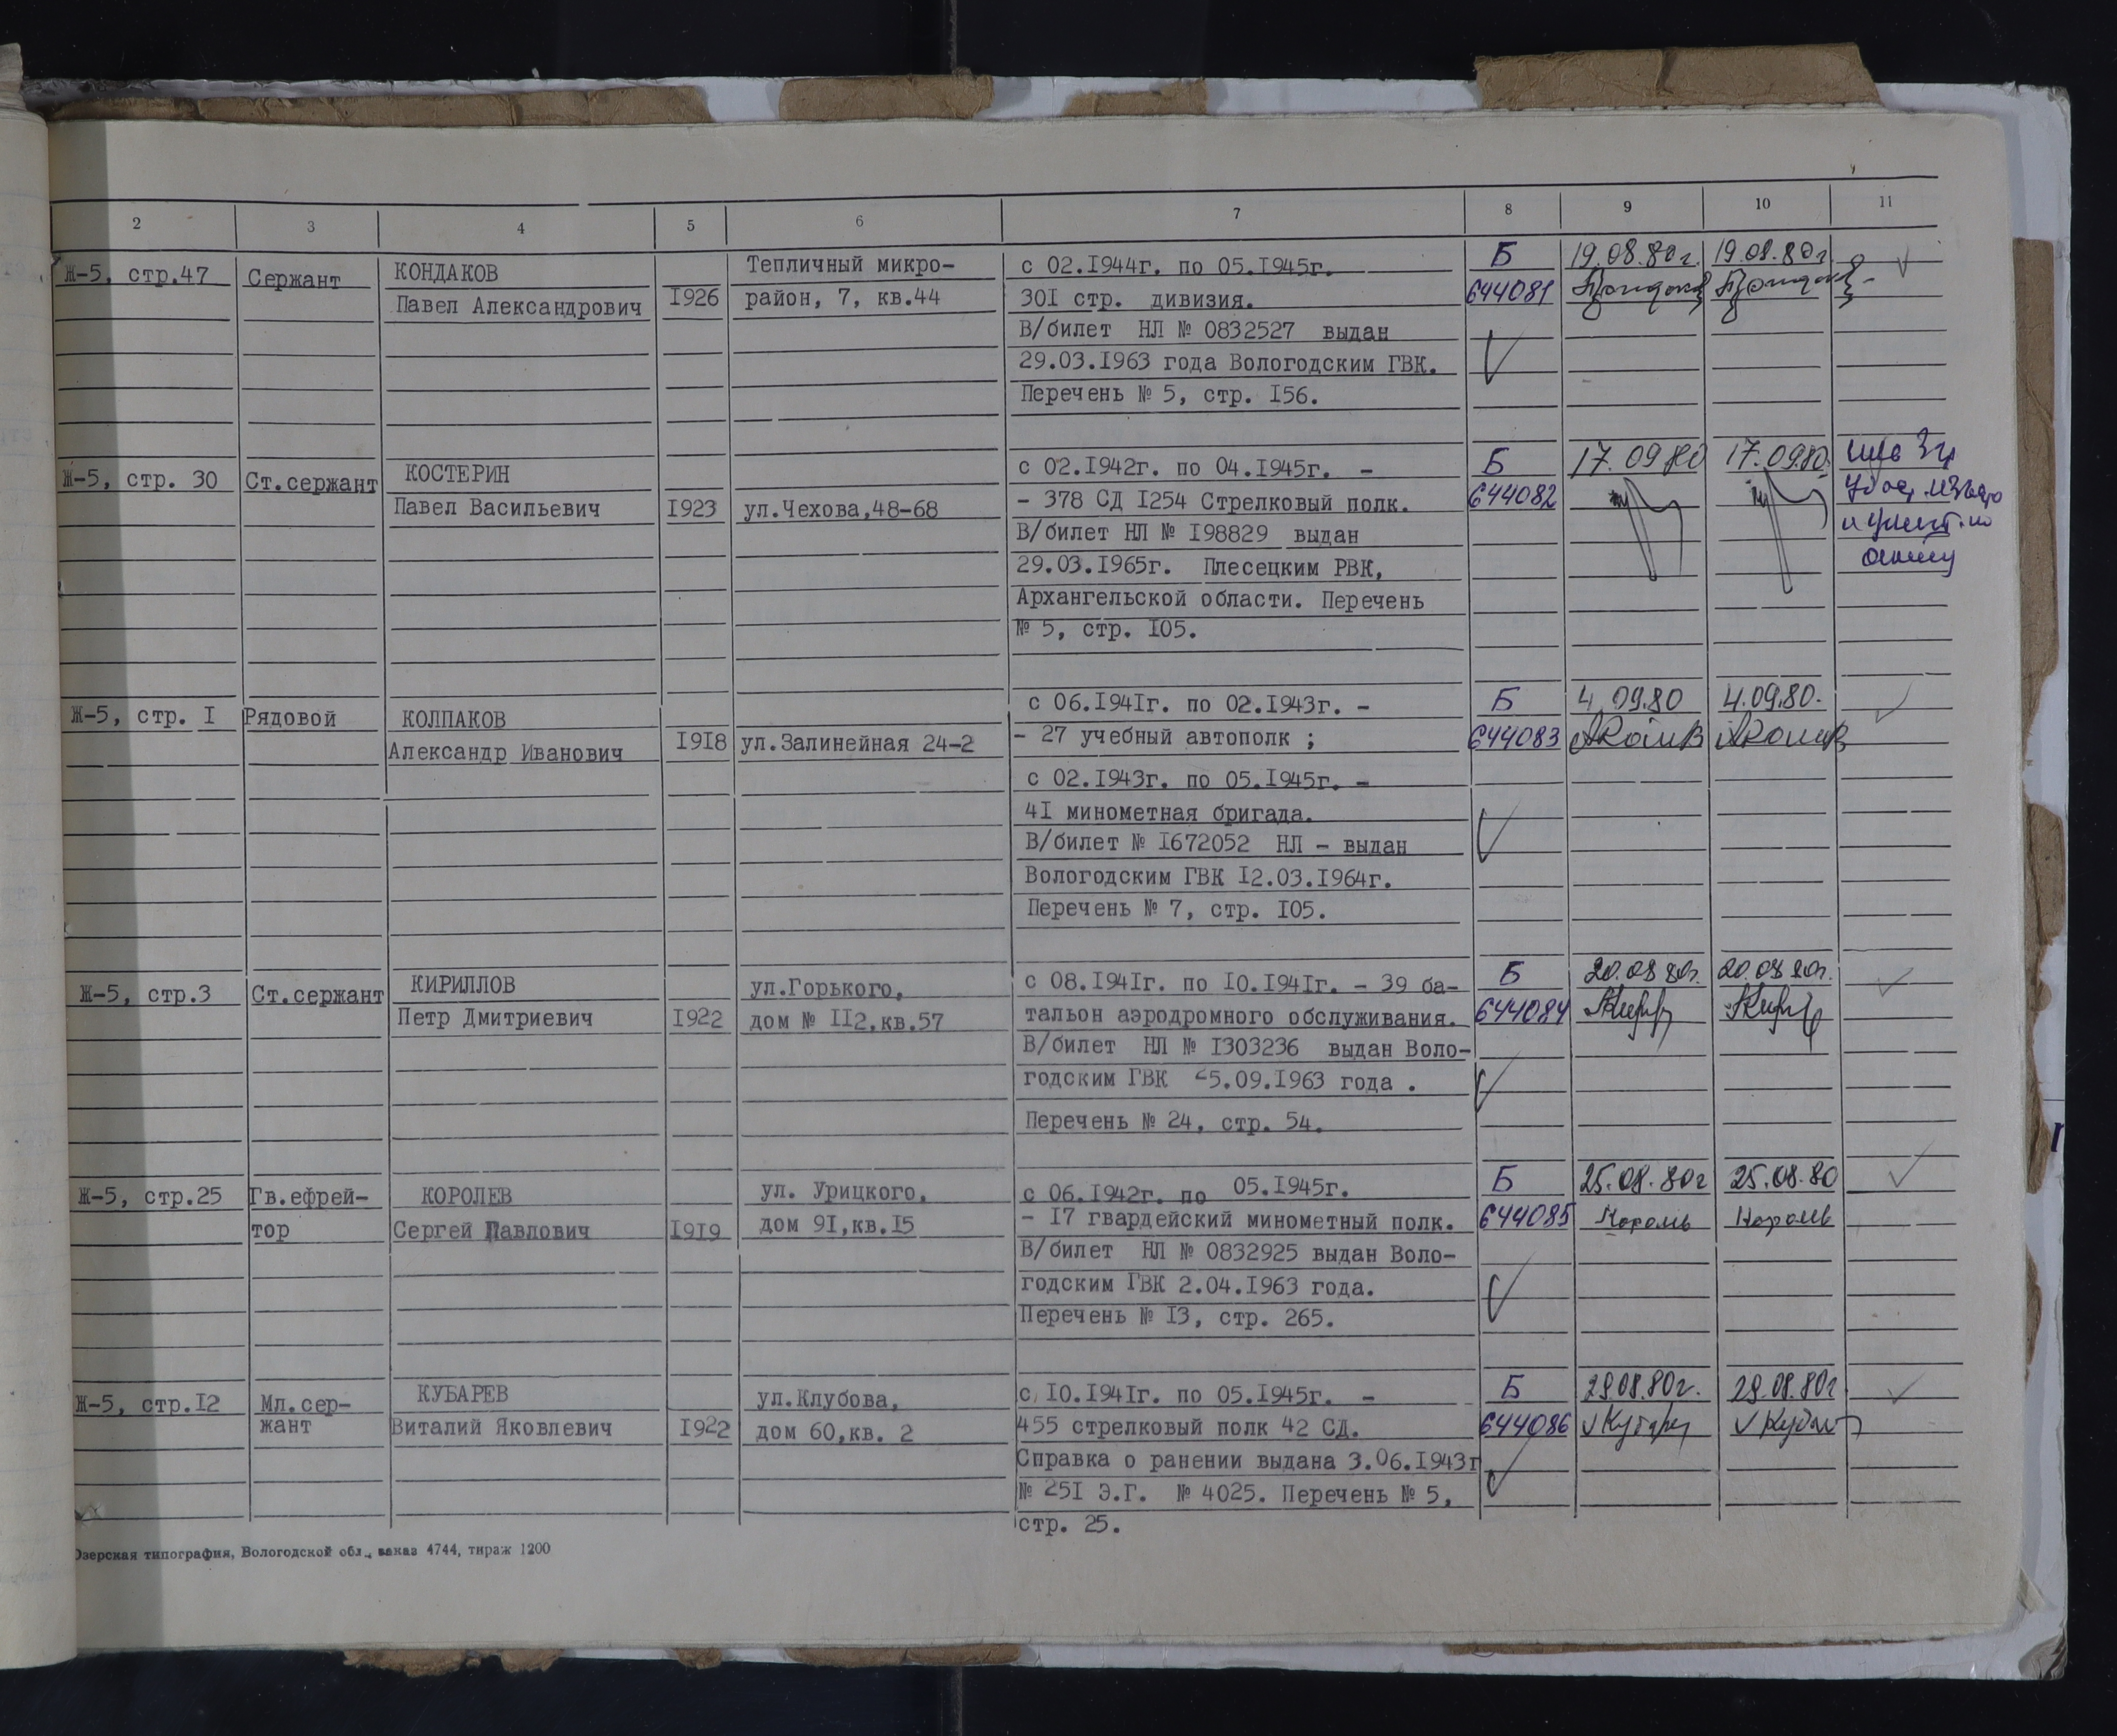 2 3 4 5 6 7 8 9 10 11
Ж-5, стр.47 Сержант КОНДАКОВ Тепличный микро- с 02.1944г. по 05.1945г. Б 19.08.80г. 19.08.80г
Павел Александрович 1926 район, 7, кв.44 301 стр. дивизия. 644081
В/билет НЛ № 0832527 выдан
29.03.1963 года Вологодским ГВК.
Перечень № 5, стр. 156.
Ж-5, стр. 30 Ст.сержант КОСТЕРИН с 02.1942г. по 04.1945г. - Б 17.09 80 17.09.80
Павел Васильевич 1923 ул.Чехова,48-68 - 378 СД 1254 Стрелковый полк. 644082
В/билет НЛ № 198829 выдан
29.03.1965г. Плесецким РВК,
Архангельской области. Перечень
№ 5, стр. 105.
Ж-5, стр. 1 Рядовой КОЛПАКОВ с 06.1941г. по 02.1943г. - Б 4.09.80 4.09.80.
Александр Иванович 1918 ул.Залинейная 24-2 - 27 учебный автополк ; 644083
с 02.1943г. по 05.1945г. -
41 минометная бригада.
В/билет № 1672052 НЛ - выдан
Вологодским ГВК 12.03.1964г.
Перечень № 7, стр. 105.
Ж-5, стр.3 Ст.сержант КИРИЛЛОВ ул.Горького, с 08.1941г. по 10.1941г. - 39 ба- Б 20.08 80г. 20.08 80г.
Петр Дмитриевич 1922 дом № 112,кв.57 тальон аэродромного обслуживания. 644084
В/билет НЛ № 1303236 выдан Воло-
годским ГВК 25.09.1963 года .
Перечень № 24, стр. 54.
Ж-5, стр.25 Гв.ефрей- КОРОЛЕВ ул. Урицкого, с 06.1942г. по 05.1945г. Б 25.08.80г 25.08.80
тор Сергей Павлович 1919 дом 91,кв.15 - 17 гвардейский минометный полк. 644085 Король Король
В/билет НЛ № 0832925 выдан Воло-
годским ГВК 2.04.1963 года.
Перечень № 13, стр. 265.
Ж-5, стр.12 Мл.сер- КУБАРЕВ ул.Клубова, с 10.1941г. по 05.1945г. - Б 29.08.80г. 29.08.80г
жант Виталий Яковлевич 1922 дом 60,кв. 2 455 стрелковый полк 42 СД. 644086
Справка о ранении выдана 3.06.1943г
№ 251 Э.Г. № 4025. Перечень № 5,
стр. 25.
Озерская типография, Вологодской обл., заказ 4744, тираж 1200